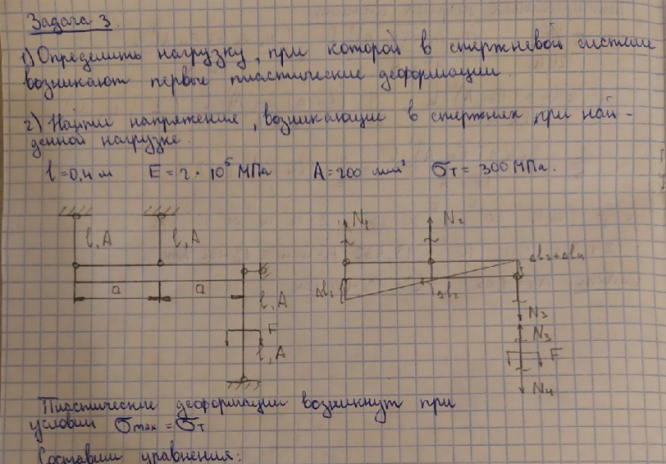 Задача 3.
1) Определить нагрузку, при которой в стержневой системе
возникают первые пластические деформации.
2) Найти напряжения, возникающие в стержнях при най-
денной нагрузке.
l=0,4 м E = 2·10⁵ МПа A=200 мм² σт = 300 МПа.
N₁ N₂
l, A l, A
a a
l, A
F
l, A
Δl₁ Δl₂ Δl₃+Δl₄
N₃
N₃
F
N₄
Пластические деформации возникнут при
условии σmax = σт
Составим уравнения: